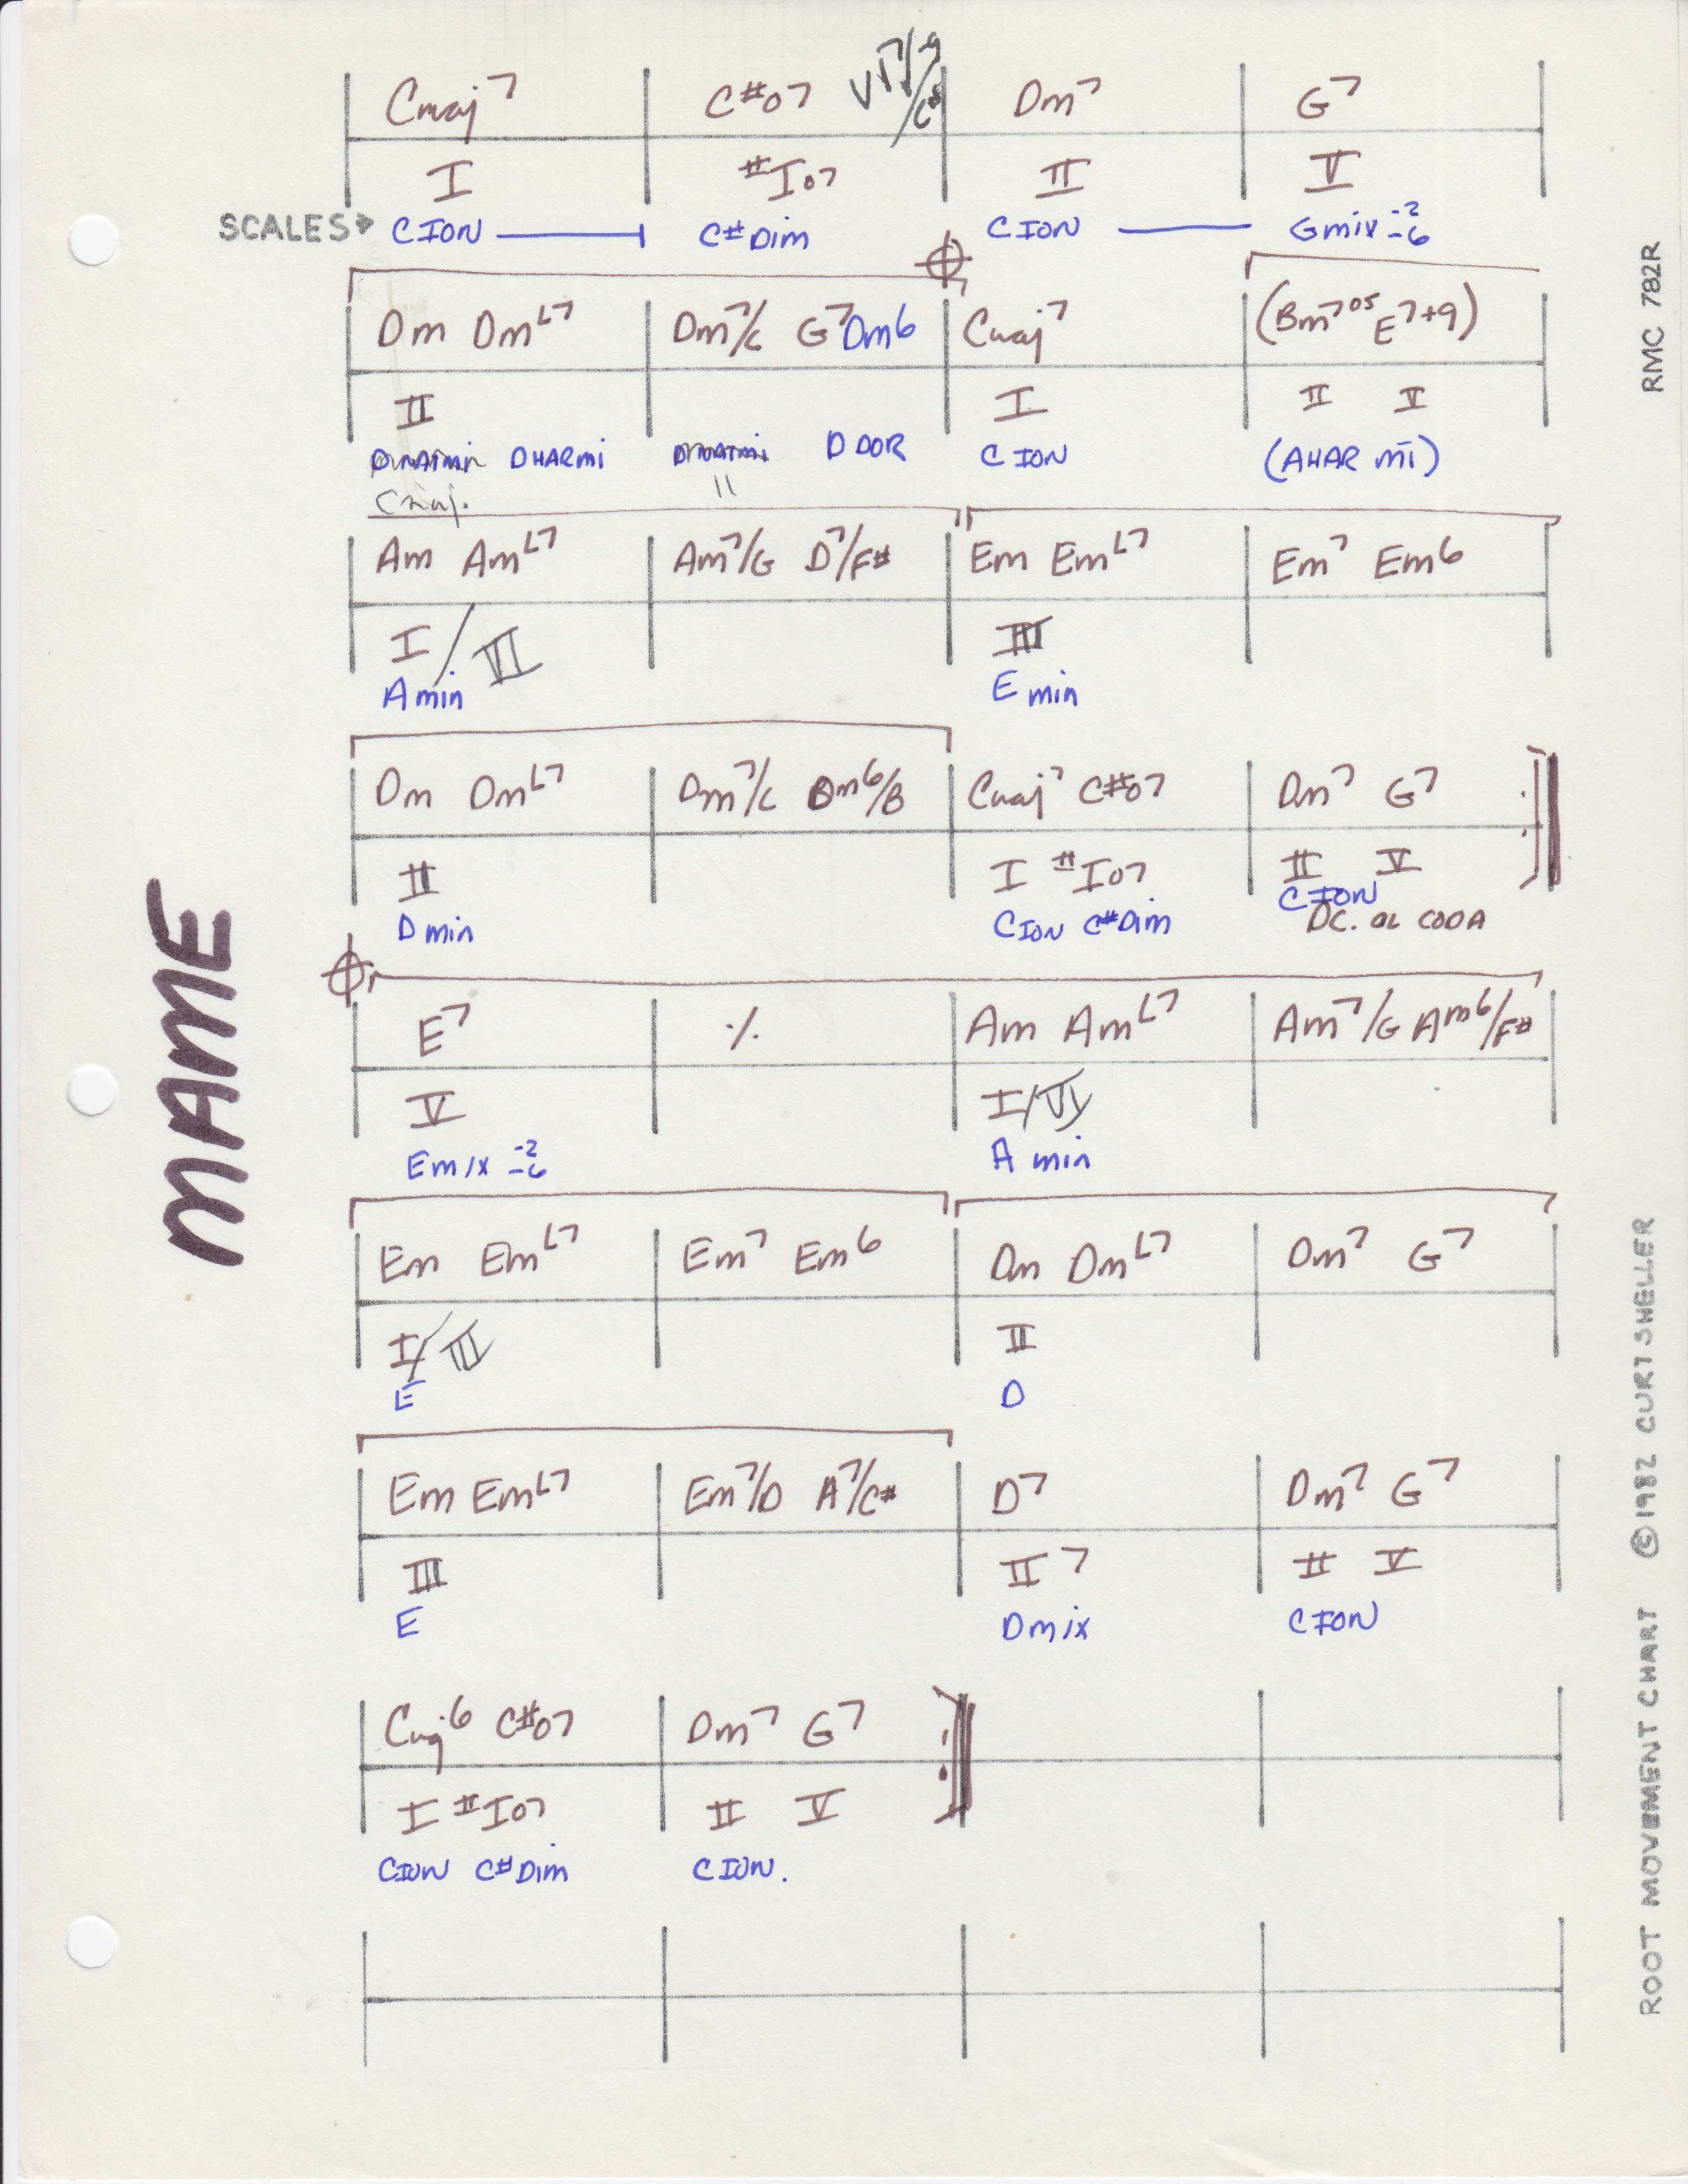 Cmaj7 C#o7 VI7/-9/C# Dm7 G7
I #Io7 II V
SCALES→ C ION C# Dim C ION G mix -2 -6
Dm DmL7 Dm7/C G7 Dm6 Cmaj7 (Bm7o5 E7+9)
II I II V
D HARMI D DOR C ION (A HAR MI)
Cmaj. "
Am AmL7 Am7/G D7/F# Em EmL7 Em7 Em6
I/VI III
A min E min
Dm DmL7 Dm7/C Dm6/B Cmaj7 C#o7 Dm7 G7
II I #Io7 II V
D min C ION C# Dim C ION
DC. al CODA
E7 ٪ Am AmL7 Am7/G Am6/F#
V I/VI
E mix -2 -6 A min
Em EmL7 Em7 Em6 Dm DmL7 Dm7 G7
I/III II
E D
Em EmL7 Em7/D A7/C# D7 Dm7 G7
III II7 II V
E D mix C ION
Cmaj6 C#o7 Dm7 G7
I #Io7 II V
C ION C# Dim C ION.
MAME
RMC 782R
ROOT MOVEMENT CHART ©1982 CURT SHELLER